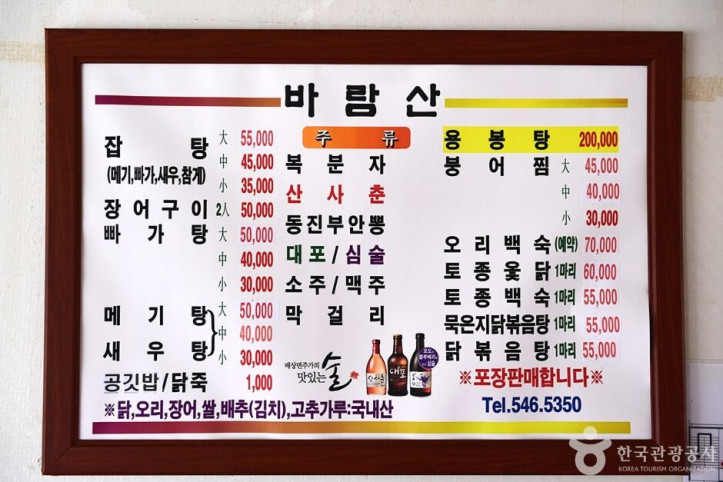 바랑산
잡탕 大 55,000
(메기,빠가,새우,참게) 中 45,000
小 35,000
장어구이 2人 50,000
빠가탕 大 50,000
中 40,000
小 30,000
메기탕 大 50,000
中 40,000
새우탕 小 30,000
공깃밥/닭죽 1,000
주류
복분자
산사춘
동진부안뽕
대포/심술
소주/맥주
막걸리
배상면주가의
맛있는 술
대포
용봉탕 200,000
붕어찜 大 45,000
中 40,000
小 30,000
오리백숙 (예약) 70,000
토종옻닭 1마리 60,000
토종백숙 1마리 55,000
묵은지닭볶음탕 1마리 55,000
닭볶음탕 1마리 55,000
※포장판매합니다※
※닭,오리,장어,쌀,배추(김치),고추가루:국내산
Tel.546.5350
한국관광공사
KOREA TOURISM ORGANIZATION